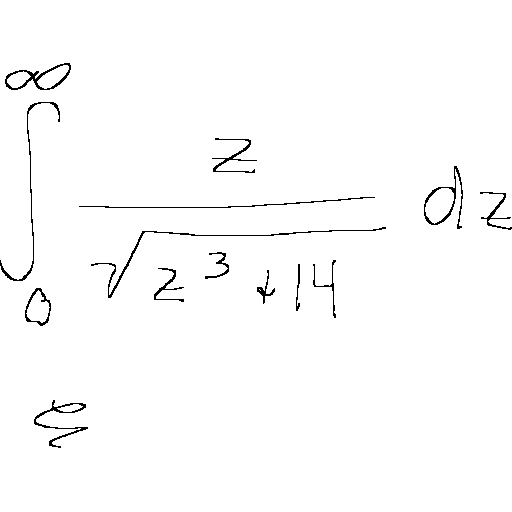 \int_{0}^{\infty} \frac{z}{\sqrt{z^3+14}} dz
ξ